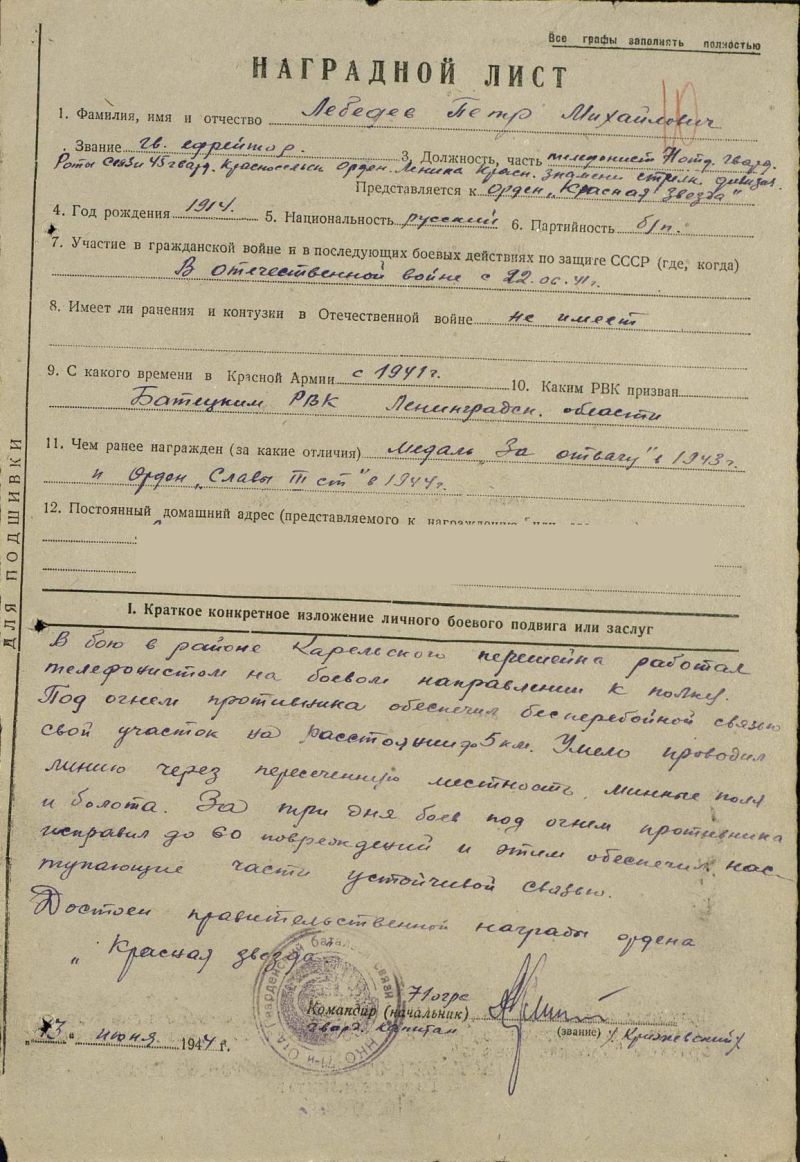 Все графы заполнять полностью
НАГРАДНОЙ ЛИСТ
1. Фамилия, имя и отчество Лебедев Петр Михайлович
. Звание гв. ефрейтор. 3. Должность, часть телефонист 71 отд. гвард.
Роты связи 45 гвард. Красносельск Орден. Ленина Красн. Знамени стрелк. дивизии
Представляется к Орден „Красная Звезда"
4. Год рождения 1914. 5. Национальность русский 6. Партийность б/п.
7. Участие в гражданской войне и в последующих боевых действиях по защите СССР (где, когда)
В отечественной войне с 22.06.41г.
8. Имеет ли ранения и контузии в Отечественной войне не имеет
9. С какого времени в Красной Армии с 1941г. 10. Каким РВК призван
Батецким РВК Ленинградск. области
11. Чем ранее награжден (за какие отличия) Медаль „За отвагу" в 1943г.
и Орден „Славы III ст" в 1944г.
12. Постоянный домашний адрес (представляемого к
ДЛЯ ПОДШИВКИ
I. Краткое конкретное изложение личного боевого подвига или заслуг
В бою в районе Карельского перешейка работал
телефонистом на боевом направлении к полку.
Под огнем противника обеспечил бесперебойной связью
свой участок на расстоянии до 5 км. Умело проводил
линию через пересеченную местность, минные поля
и болота. За три дня боев под огнем противника
исправил до 60 повреждений и этим обеспечил нас-
тупающие части устойчивой связью.
Достоен правительственной награды ордена
„Красная звезда"
71 огрс
Командир (начальник)
гвард. капитан (звание) /Кряжевский/
июня 1944 г.